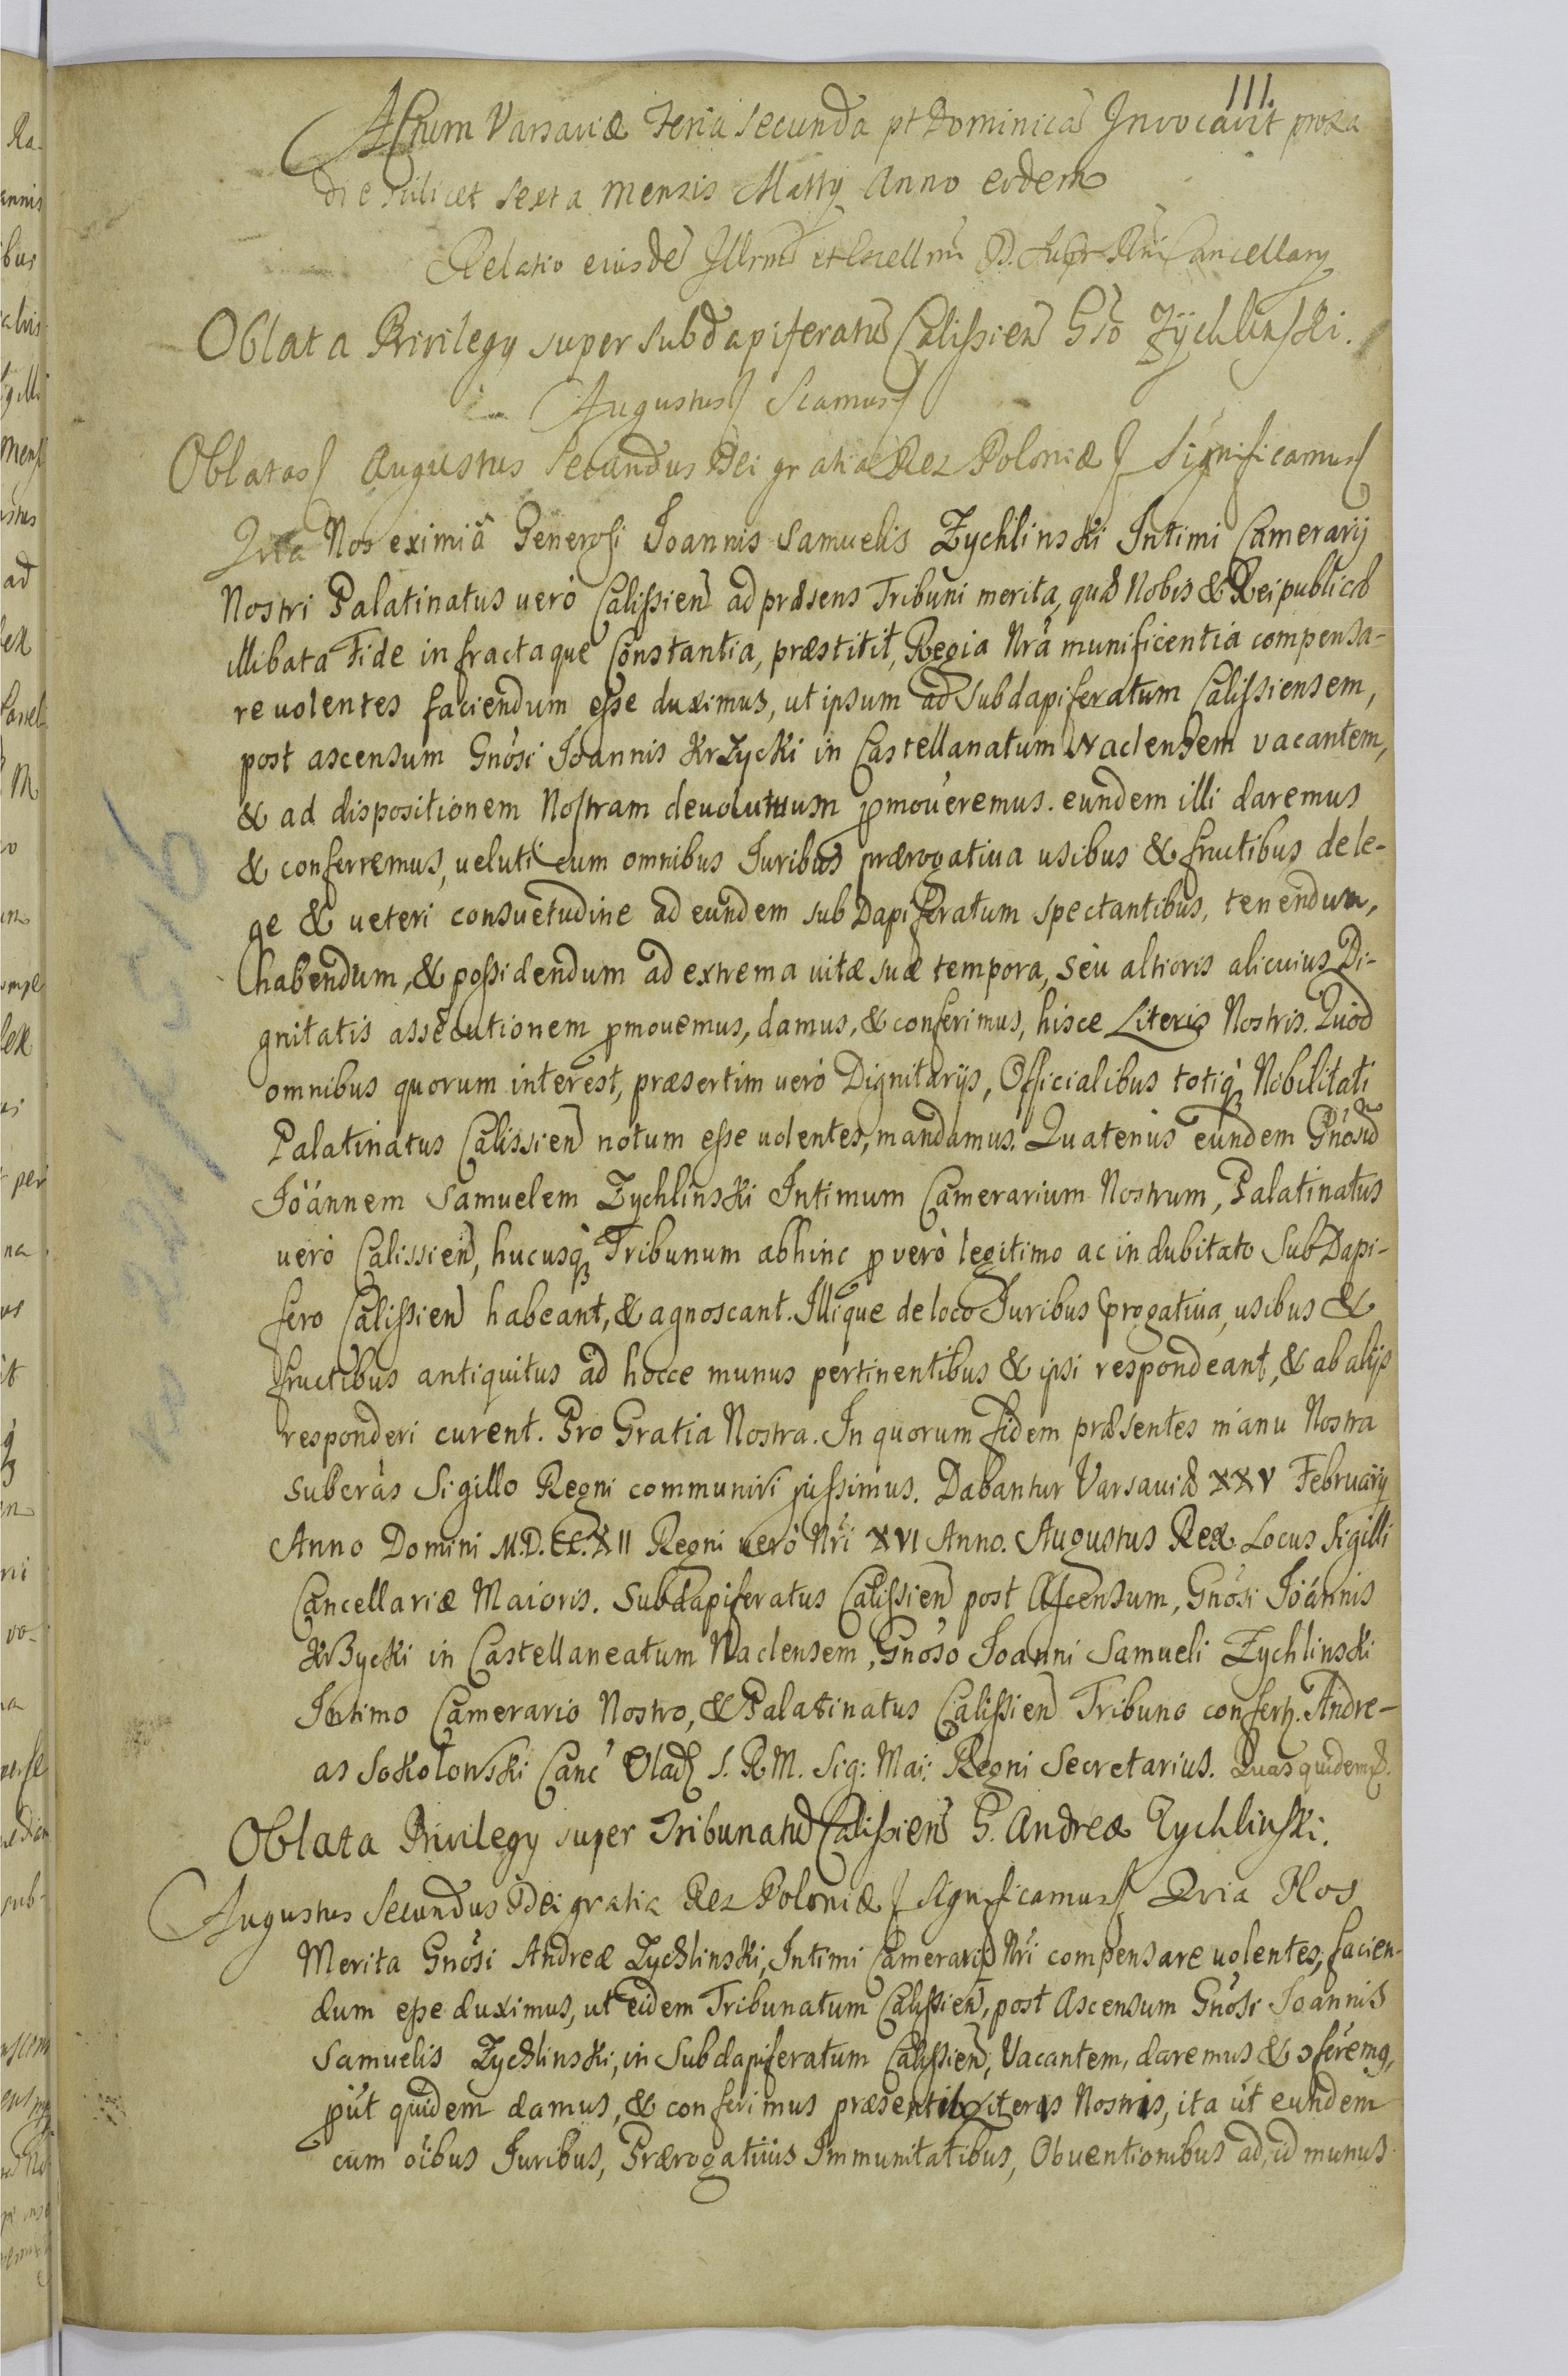 111.
Actum Varsaviæ Feria Secunda pt Dominicã Invocavit proxa
die scilicet sexta Mensis Martÿ Anno eodem
Relatio eiusdẽ Illrmi et Excellmi D. Supr Rñi Cancellarÿ
Oblata Privilegÿ super subdapiferatũ Calissien Gso Zÿchlinski.
Augustus Scamus
Oblatas Augustus Secundus Dei gratia Rex Poloniæ Significamus
Quia Nos eximiã Generosi Joannis Samuelis Zychlinski Intimi Camerarij
Nostri Palatinatus uerò Calissien ad præsens Tribuni merita, quæ Nobis & Reipublicæ
illibata Fide infractaque Constantia, præstitit, Regia Nrã munificentia compensa-
re uolentes faciendum esse duximus, ut ipsum ad Subdapiferatum Calissiensem,
post ascensum Gnosi Joannis Krzycki in Castellanatum Naclensem vacantem,
& ad dispositionem Nostram deuolutum pmoueremus. eundem illi daremus
& conferremus, ueluti cum omnibus Iuribus prærogatiua usibus & fructibus de le-
ge & ueteri consuetudine ad eundem subDapiferatum spectantibus, tenendum,
habendum, & possidendum ad extrema uitæ suæ tempora, seu altioris alicuius Di-
gnitatis assecutionem pmouemus, damus, & conferimus, hisce Literis Nostris. Quod
omnibus quorum interest, præsertim uerò Dignitarijs, Officialibus totiq3 Nobilitati
Palatinatus Calissien notum esse uolentes, mandamus. Quatenus eundem Gnosũ
Joannem Samuelem Zychlinski Intimum Camerarium Nostrum, Palatinatus
uerò Calissien, hucusq3 Tribunum abhinc p uerò legitimo ac indubitato SubDapi-
fero Calissien habeant, & agnoscant. Illique de loco Iuribus progatiua, usibus &
fructibus antiquitus ad hocce munus pertinentibus & ipsi respondeant, & ab alijs
responderi curent. Pro Gratia Nostra. In quorum fidem præsentes manu Nostra
suberas Sigillo Regni communiri jussimus. Dabantur Varsauiæ XXV Februarij
Anno Domini M.D.CC.XII Regni uerò Nri XVI Anno. Augustus Rex Locus Sigilli
Cancellariæ Maioris. Subdapiferatus Calissien post Ascensum, Gnosi Joannis
Krzycki in Castellaneatum Naclensem, Gnoso Joanni Samueli Zychlinski
Intimo Camerario Nostro, & Palatinatus Calissien Tribuno confertr. Andre-
as Sokołowski Canc Vlad S. R M. Sig: Mai: Regni Secretarius. Quas quidem
Oblata Privilegÿ super Tribunatũ Calissien G. Andreæ Zychlinski.
Augustus Secundus Dei gratia Rex Poloniæ Significamus Quia Nos
Merita Gnosi Andreæ Zychlinski, Intimi Camerarij Nri compensare uolentes, facien-
dum esse duximus, ut eidem Tribunatum Calissien, post Ascensum Gnosi Joannis
Samuelis Zychlinski, in Subdapiferatum Calissien, Vacantem, daremus & ɔferemq,
put quidem damus, & conferimus præsentib Literis Nostris, ita ut eundem
cum oibus Iuribus, Prærogatiuis Immunitatibus, Obuentionibus ad id munus